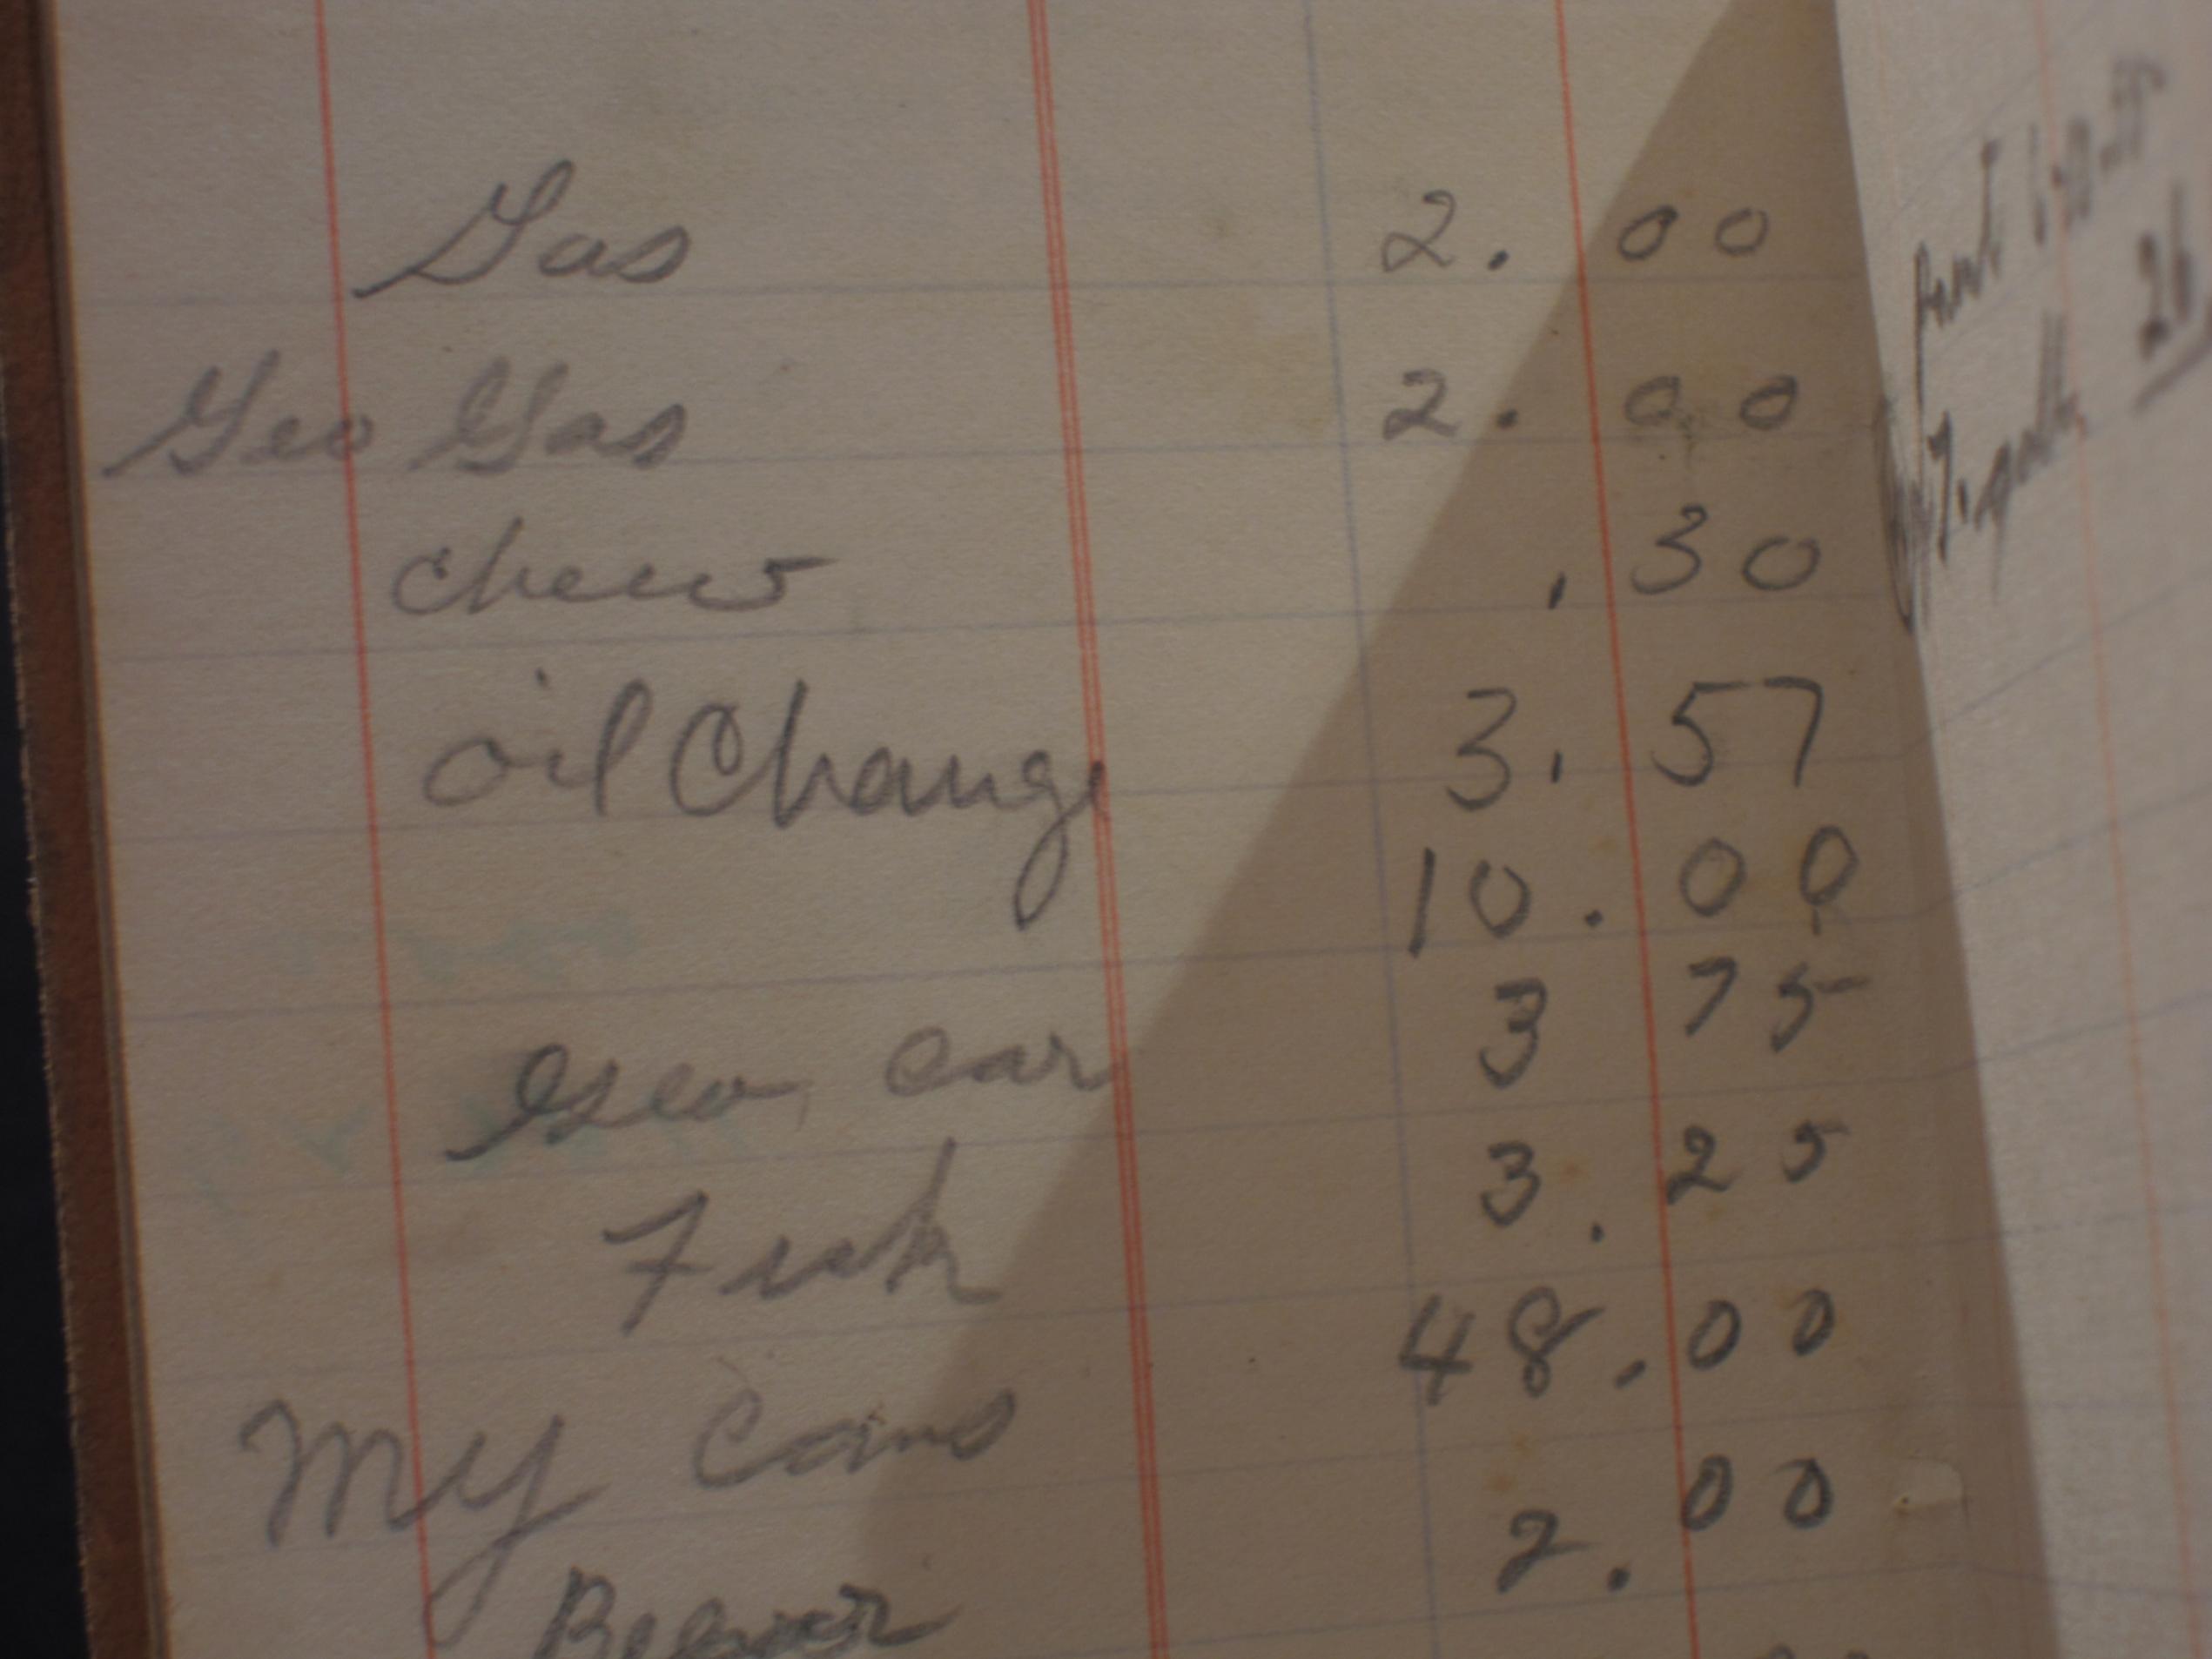 Gas 2.00
Geo Gas 2.00
chew .30
oil Change 3.57
10.00
Geo car 3 75
Fish 3.25
My cans 48.00
2.00
26